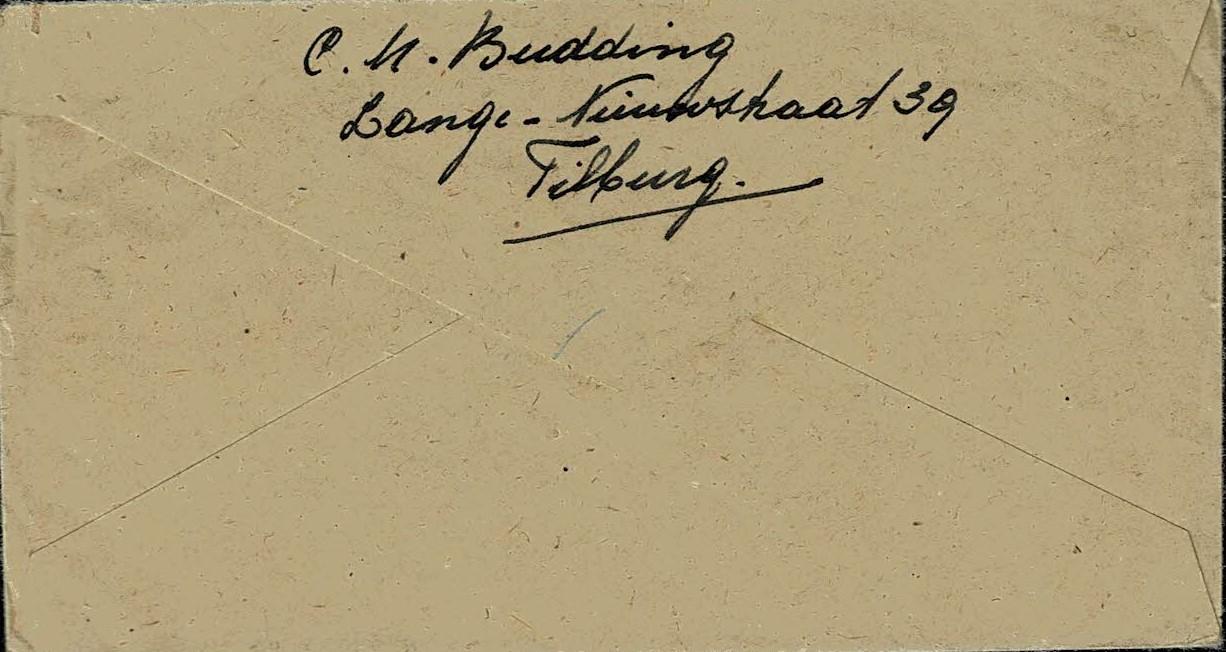 C. M. Budding
Lange-Nieuwstraat 39
Tilburg.